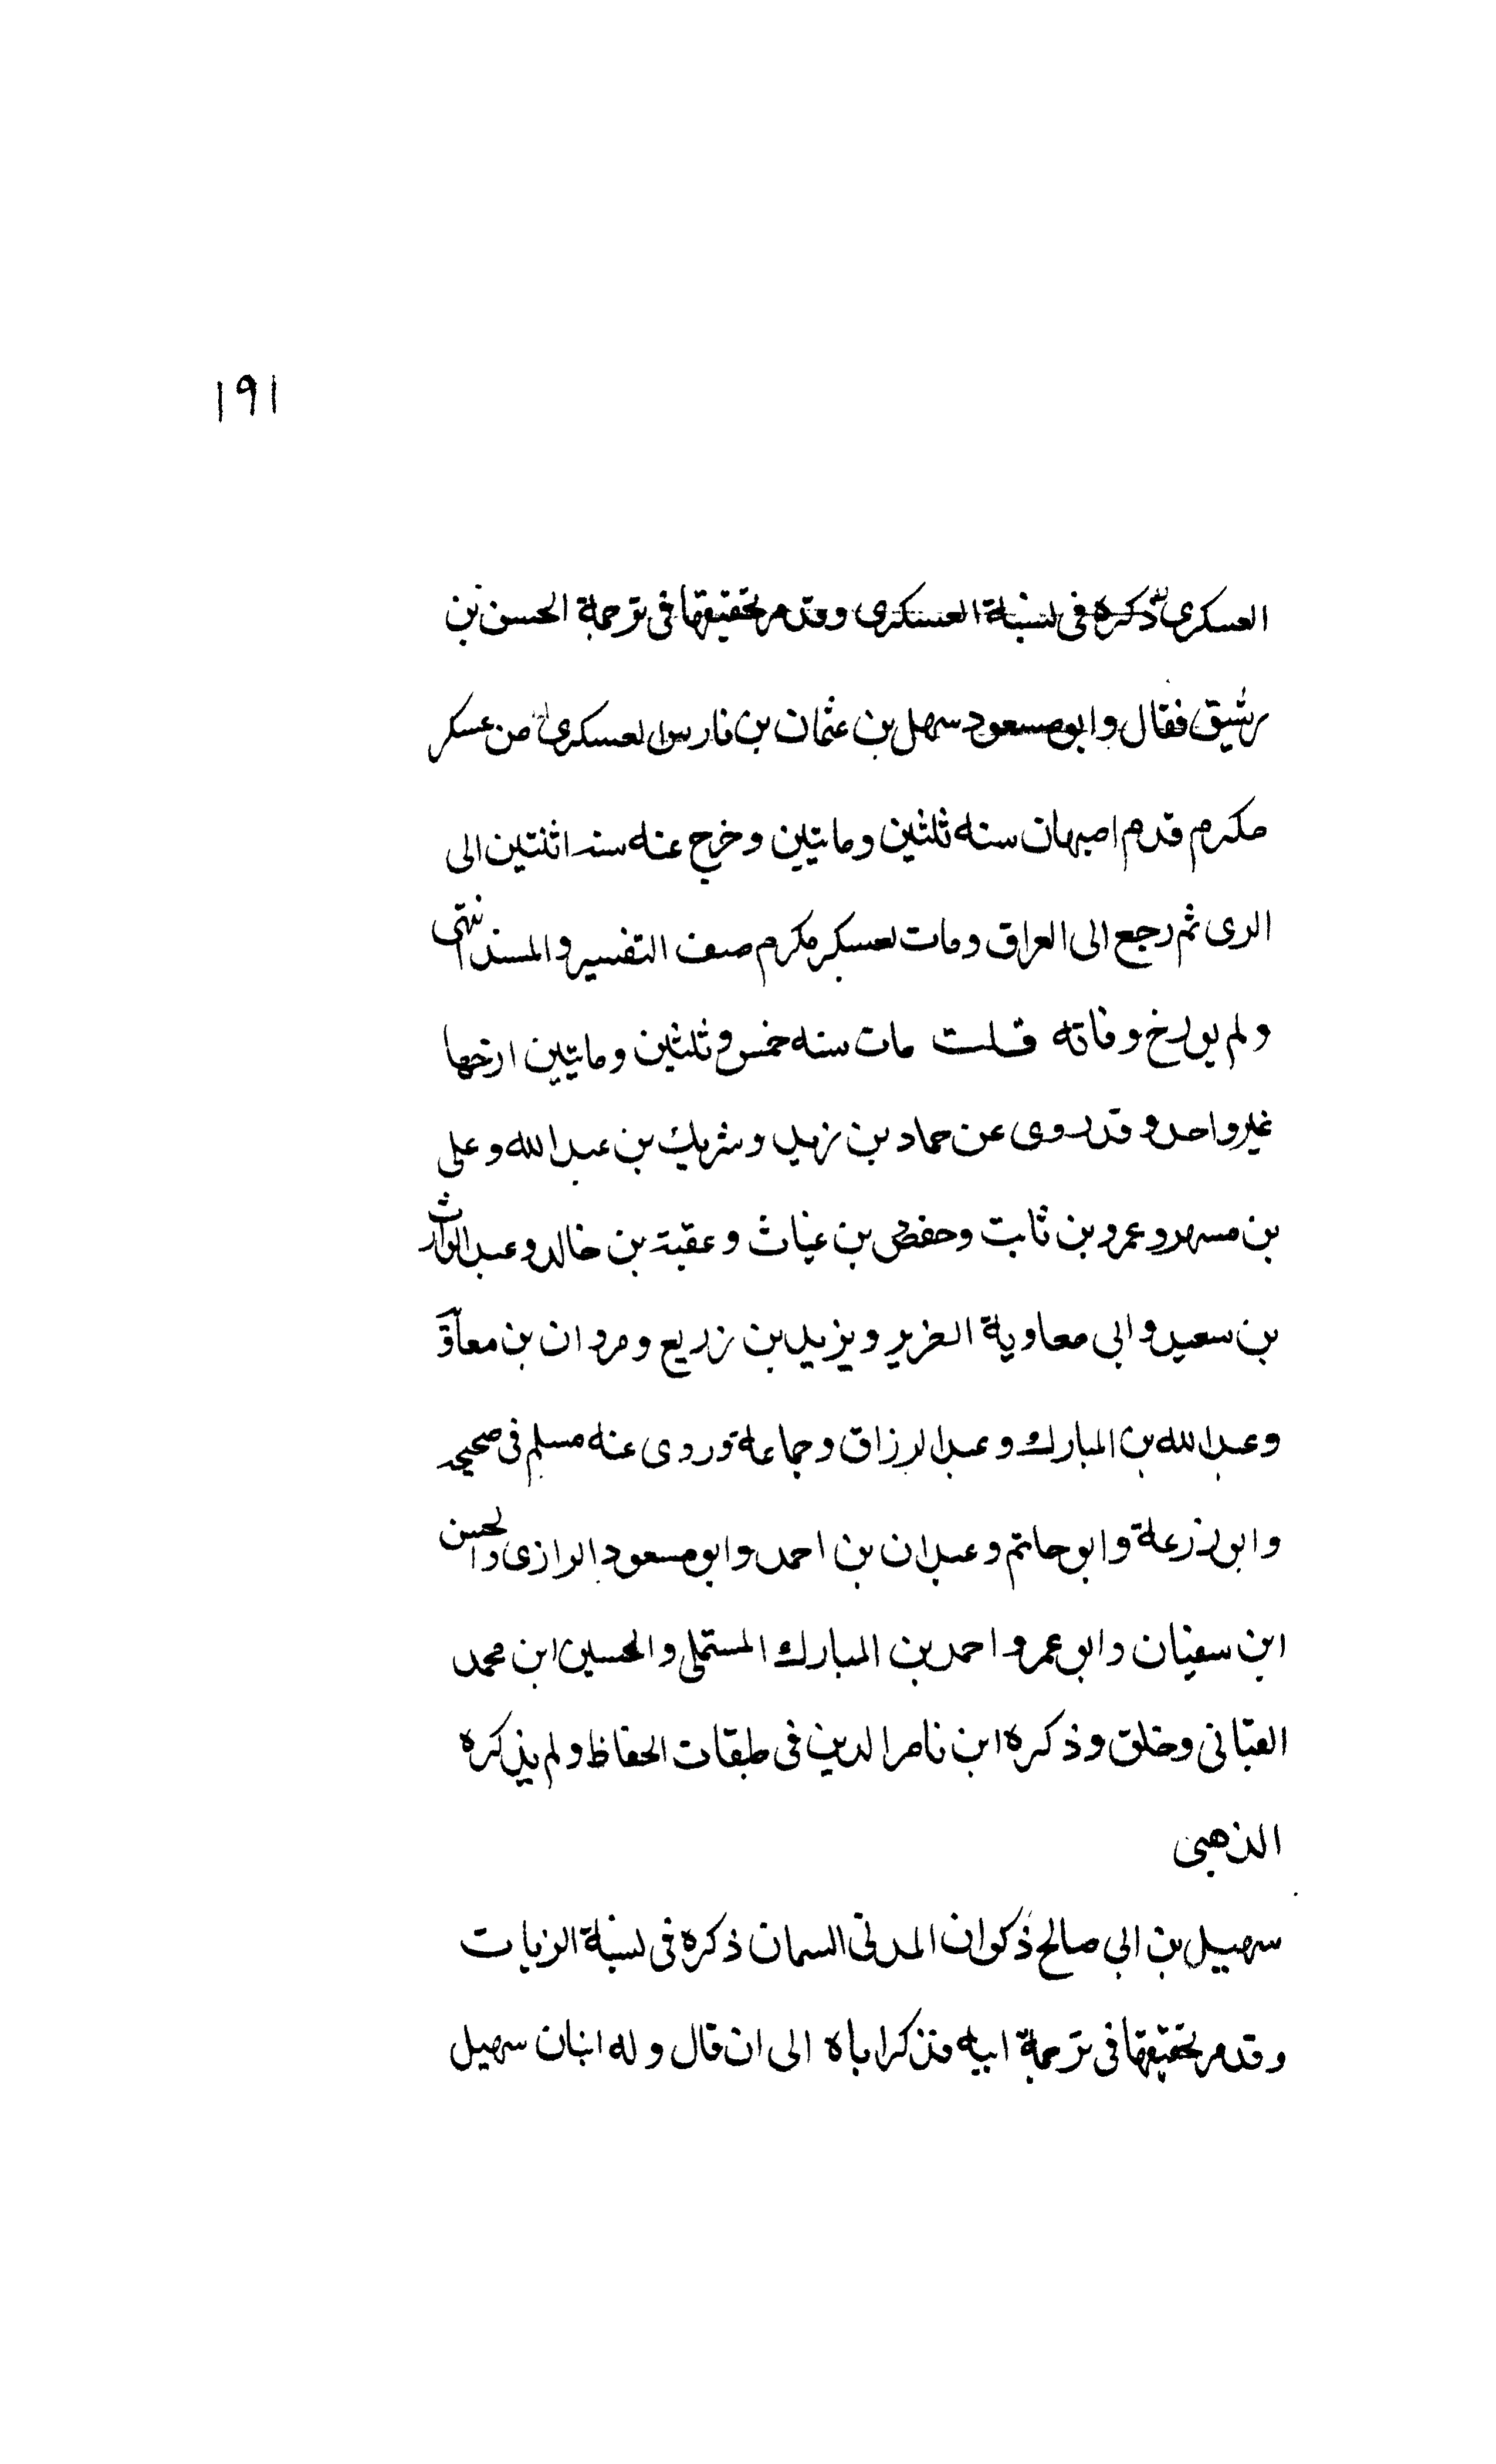 ١٩١
العسكرى ذكره فى نسبة العسكرى وقد مر تحقيقها فى ترجمة الحسن بن
رشيق فقال وابو مسعود سهل بن عثمان بن فارس العسكرى من عسكر
مكرم قدم اصبهان سنه ثلثين وماتيين وخرج عنه سنه اثنتين الى
الرى ثم رجع الى العراق ومات لعسكر مكرم صنف التفسير والمسند انتهى
ولم يورخ وفاته قلت مات سنه خمس وثلثين وماتيين ارخها
غير واحد وقد روى عن حماد بن زيد وشريك بن عبد الله وعلى
بن مسهر وعمرو بن ثابت وحفص بن غياث وعقبة بن خالد وعبد الوارث
بن سعيد وابى معاوية الضرير ويزيد بن زريع ومروان بن معاوية
وعبد الله بن المبارك وعبد الرزاق وجماعة وروى عنه مسلم فى صحيحه
وابو زرعة وابو حاتم وعبدان بن احمد وابو مسعود الرازى والحسن
ابن سفيان وابو عمرو احمد بن المبارك المستملى والحسين ابن محمد
القبانى وخلق وذكره ابن ناصر الدين فى طبقات الحفاظ ولم يذكره
الذهبى
سهيل بن ابى صالح ذكوان المدنى السمان ذكره فى نسبة الزيات
وقد مر تحقيقها فى ترجمة ابيه فذكر اباه الى ان قال وله ابنان سهيل